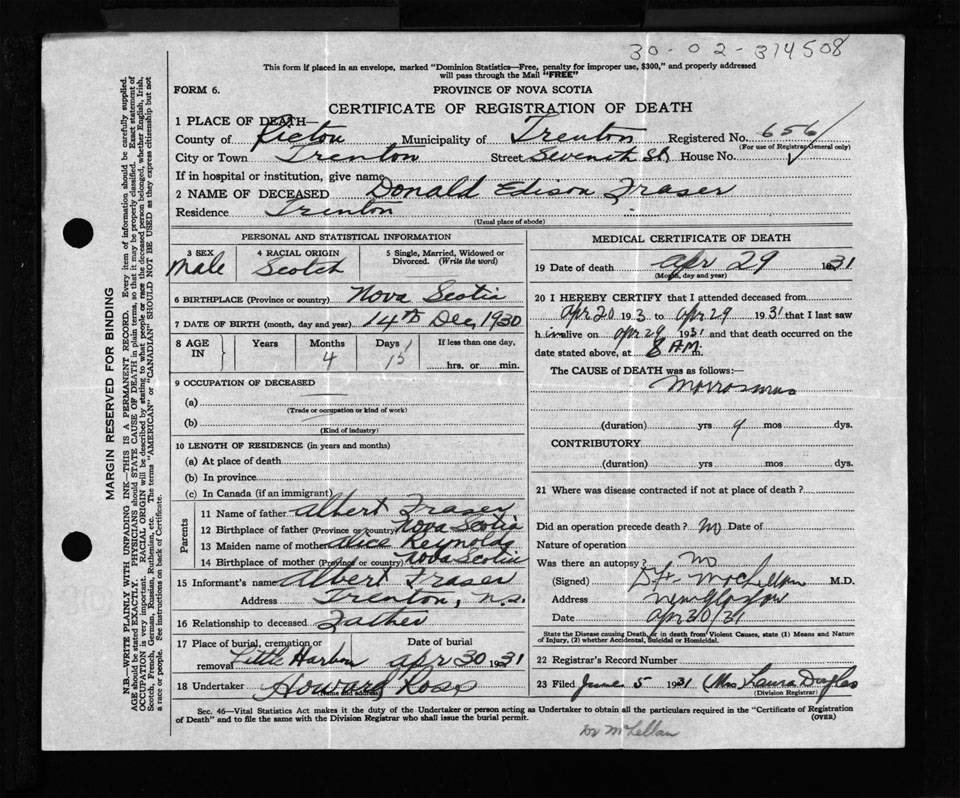 30-02-314508
This form if placed in an envelope, marked "Dominion Statistics—Free, penalty for improper use, $300," and properly addressed
will pass through the Mail "FREE"
FORM 6.
PROVINCE OF NOVA SCOTIA
CERTIFICATE OF REGISTRATION OF DEATH
1 PLACE OF DEATH—
County of Pictou Municipality of Trenton Registered No. 656
(For use of Registrar-General only)
City or Town Trenton Street Seventh St. House No.
If in hospital or institution, give name
2 NAME OF DECEASED Donald Edison Fraser
Residence Trenton
(Usual place of abode)
PERSONAL AND STATISTICAL INFORMATION
3 SEX Male
4 RACIAL ORIGIN Scotch
5 Single, Married, Widowed or Divorced. (Write the word)
6 BIRTHPLACE (Province or country) Nova Scotia
7 DATE OF BIRTH (month, day and year) 14th Dec, 1930
8 AGE IN Years Months 4 Days 15 If less than one day, hrs. or min.
9 OCCUPATION OF DECEASED
(a)
(Trade or occupation or kind of work)
(b)
(Kind of industry)
10 LENGTH OF RESIDENCE (in years and months)
(a) At place of death
(b) In province
(c) In Canada (if an immigrant)
Parents
11 Name of father Albert Fraser
12 Birthplace of father (Province or country) Nova Scotia
13 Maiden name of mother Alice Reynolds
14 Birthplace of mother (Province or country) Nova Scotia
15 Informant's name Albert Fraser
Address Trenton, N.S.
16 Relationship to deceased Father
17 Place of burial, cremation or removal Little Harbor Date of burial Apr 30 1931
18 Undertaker Howard Ross
(Name and address)
MEDICAL CERTIFICATE OF DEATH
19 Date of death Apr 29 1931
(Month, day and year)
20 I HEREBY CERTIFY that I attended deceased from
Apr 20 193 to Apr 29 1931 that I last saw
h im alive on Apr 29 1931 and that death occurred on the
date stated above, at 8 A.M. m.
The CAUSE of DEATH was as follows:—
(duration) yrs mos dys.
CONTRIBUTORY
(duration) yrs mos dys.
21 Where was disease contracted if not at place of death?
Did an operation precede death? No Date of
Nature of operation
Was there an autopsy? No
(Signed) McLellan M.D.
Address New Glasgow
Date Apr 30/31
State the Disease causing Death, or in death from Violent Causes, state (1) Means and Nature
of Injury, (2) whether Accidental, Suicidal or Homicidal.
22 Registrar's Record Number
23 Filed June 5 1931 (Mrs Laura Douglas
(Division Registrar)
Sec. 46—Vital Statistics Act makes it the duty of the Undertaker or person acting as Undertaker to obtain all the particulars required in the "Certificate of Registration
of Death" and to file the same with the Division Registrar who shall issue the burial permit.
(OVER)
Dr McLellan
MARGIN RESERVED FOR BINDING
N.B.—WRITE PLAINLY WITH UNFADING INK—THIS IS A PERMANENT RECORD. Every item of information should be carefully supplied.
AGE should be stated EXACTLY. PHYSICIANS should STATE CAUSE OF DEATH in plain terms, so that it may be properly classified. Exact statement of
OCCUPATION is very important. RACIAL ORIGIN will be described by stating to what people or race the deceased person belonged, whether English, Irish,
Scotch, French, German, Russian, Ruthenian, etc. The terms "AMERICAN" or "CANADIAN" SHOULD NOT BE USED as they express citizenship but not
a race or people. See instructions on back of Certificate.